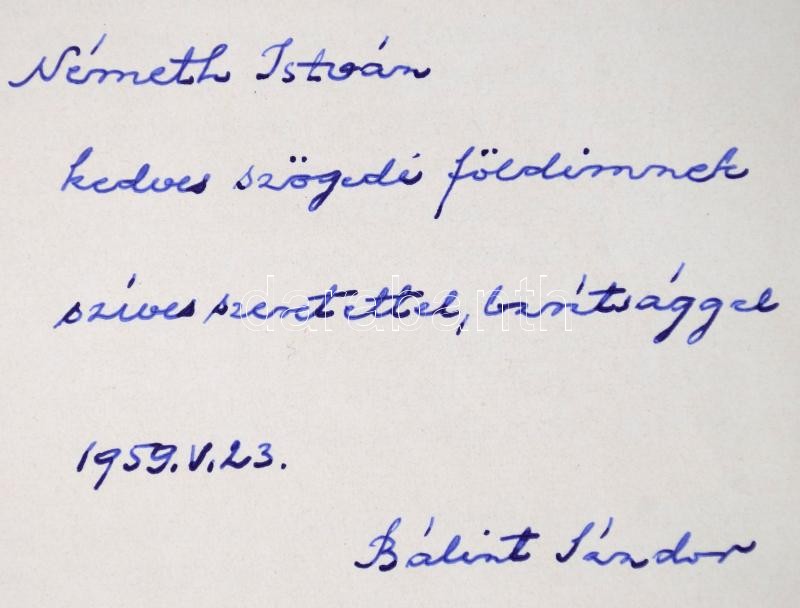 Németh István
kedves szögedi földimnek
szíves szeretettel, barátsággal
darabanth
1959. V. 23.
Bálint Sándor